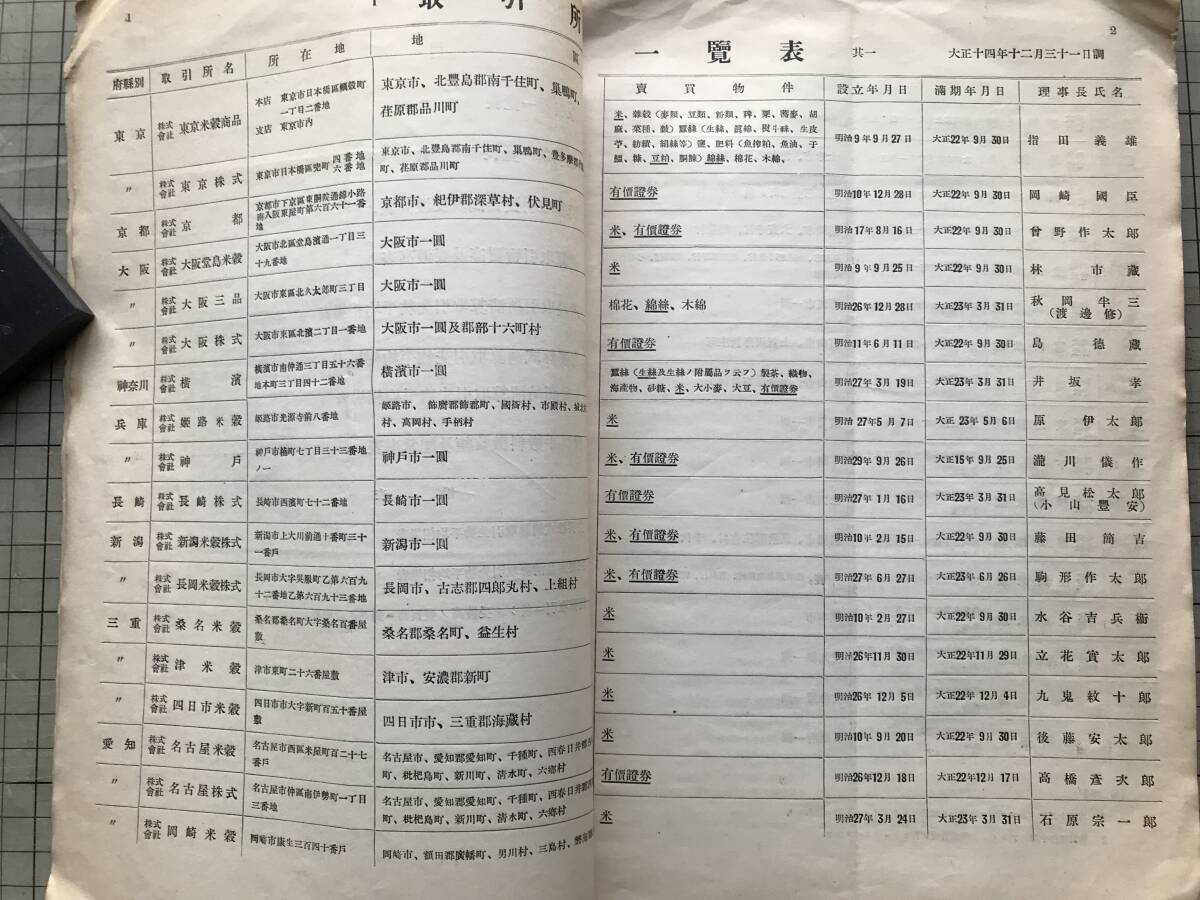 1
取引所
府縣別 取引所名 所在地 地區
東京 株式會社 東京米穀商品
本店 東京市日本橋區蠣殼町
一丁目二番地
支店 東京市內
東京市、北豐島郡南千住町、巢鴨町、
荏原郡品川町
〃 株式會社 東京株式
東京市日本橋區兜町 四番地 六番地
東京市、北豐島郡南千住町、巢鴨町、豐多摩郡
町、荏原郡品川町
京都 株式會社 京都
京都市下京區東洞院通錦小路
南入阪東屋町第六百六十一番
地
京都市、紀伊郡深草村、伏見町
大阪 株式會社 大阪堂島米穀
大阪市北區堂島濱通一丁目三
十九番地
大阪市一圓
〃 株式會社 大阪三品
大阪市東區北久太郎町三丁目
大阪市一圓
〃 株式會社 大阪株式
大阪市東區北濱二丁目一番地
大阪市一圓及郡部十六町村
神奈川 株式會社 橫濱
橫濱市南仲通三丁目五十六番
地本町三丁目四十二番地
橫濱市一圓
兵庫 株式會社 姬路米穀
姬路市光源寺前八番地
姬路市、飾磨郡飾磨町、國衙村、市殿村、城北
村、高岡村、手柄村
〃 株式會社 神戶
神戶市楠町七丁目三十三番地
ノ一
神戶市一圓
長崎 株式會社 長崎株式
長崎市西濱町七十二番地
長崎市一圓
新潟 株式會社 新潟米穀株式
新潟市上大川前通十番町三十
一番戶
新潟市一圓
〃 株式會社 長岡米穀株式
長岡市大字吳服町乙第六百九
十二番地乙第六百九十三番地
長岡市、古志郡四郎丸村、上組村
三重 株式會社 桑名米穀
桑名郡桑名町大字桑名百番屋
敷
桑名郡桑名町、益生村
〃 株式會社 津米穀
津市東町二十六番屋敷
津市、安濃郡新町
〃 株式會社 四日市米穀
四日市市大字新町百五十番屋
敷
四日市市、三重郡海藏村
愛知 株式會社 名古屋米穀
名古屋市西區米屋町百二十七
番戶
名古屋市、愛知郡愛知町、千種町、西春日井郡
町、枇杷島町、新川町、清水町、六鄉村
〃 株式會社 名古屋株式
名古屋市中區南伊勢町一丁目
三番地
名古屋市、愛知郡愛知町、千種町、西春日井郡
町、枇杷島町、新川町、清水町、六鄉村
〃 株式會社 岡崎米穀
岡崎市康生三百四十番戶
岡崎市、額田郡廣幡町、男川村、三島村、
2
一覽表 其一 大正十四年十二月三十一日調
賣買物件 設立年月日 滿期年月日 理事長氏名
米、雜穀(麥類、豆類、粉類、稗、粟、蕎麥、胡
麻、菜種、)蠶絲(生絲、眞綿、熨斗絲、生皮
苧、紡績、絹絲等)鹽、肥料(魚搾粕、魚油、子
鰮、糠、豆粕、胴鯡)綿絲、棉花、木綿、
明治9年9月27日 大正22年9月30日 指田義雄
有價證券 明治10年12月28日 大正22年9月30日 岡崎國臣
米、有價證券 明治17年8月16日 大正22年9月30日 曾野作太郎
米 明治9年9月25日 大正22年9月30日 林市藏
棉花、綿絲、木綿 明治26年12月28日 大正23年3月31日 秋岡半三
(渡邊修)
有價證券 明治11年6月11日 大正22年9月30日 島德藏
蠶絲(生絲及生絲ノ附屬品ヲ云フ)製茶、織物、
海產物、砂糖、米、大小麥、大豆、有價證券
明治27年3月19日 大正23年3月31日 井坂孝
米 明治27年5月7日 大正23年5月6日 原伊太郎
米、有價證券 明治29年9月26日 大正15年9月25日 瀧川儀作
有價證券 明治27年1月16日 大正23年3月31日 高見松太郎
(小山豐安)
米、有價證券 明治10年2月15日 大正22年9月30日 藤田簡吉
米、有價證券 明治27年6月27日 大正23年6月26日 駒形作太郎
米 明治10年2月27日 大正22年9月30日 水谷吉兵衞
米 明治26年11月30日 大正22年11月29日 立花實太郎
米 明治26年12月5日 大正22年12月4日 九鬼紋十郎
米 明治10年9月20日 大正22年9月30日 後藤安太郎
有價證券 明治26年12月18日 大正22年12月17日 高橋彥次郎
米 明治27年3月24日 大正23年3月31日 石原宗一郎